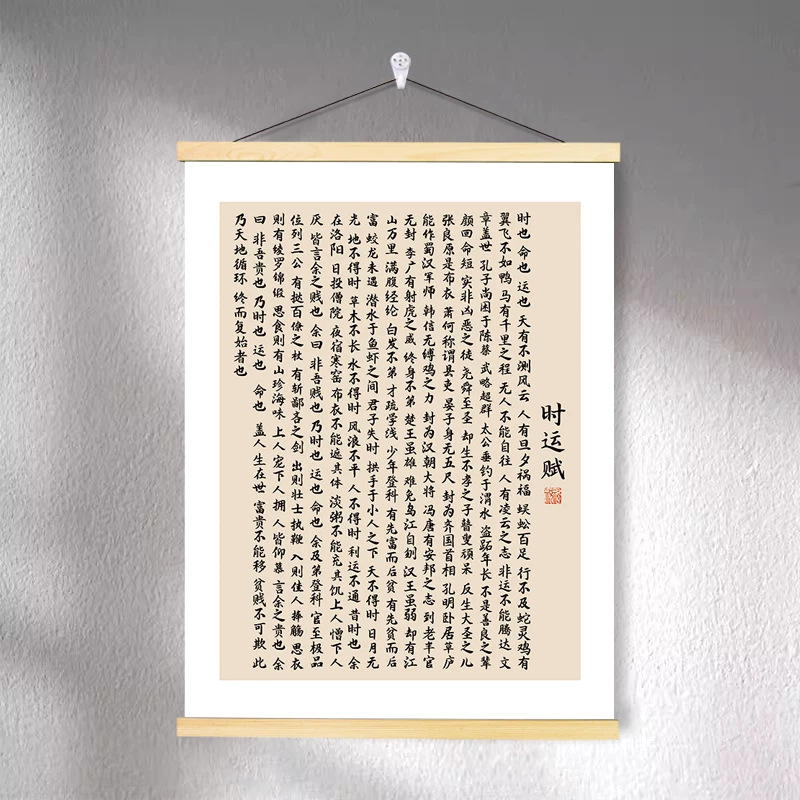 时运赋
时也 命也 运也 天有不测风云 人有旦夕祸福 蜈蚣百足 行不及蛇灵鸡有
翼飞不如鸭 马有千里之程 无人不能自往 人有凌云之志 非运不能腾达 文
章盖世 孔子尚困于陈蔡 武略超群 太公垂钓于渭水 盗跖年长 不是善良之辈
颜回命短 实非凶恶之徒 尧舜至圣 却生不孝之子 瞽叟顽呆 反生大圣之儿
张良原是布衣 萧何称谓县吏 晏子身无五尺 封为齐国首相 孔明卧居草庐
能作蜀汉军师 韩信无缚鸡之力 封为汉朝大将 冯唐有安邦之志 到老半官
无封 李广有射虎之威 终身不第 楚王虽雄 难免乌江自刎 汉王虽弱 却有江
山万里 满腹经纶 白发不第 才疏学浅 少年登科 有先富而后贫 有先贫而后
富 蛟龙未遇 潜水于鱼虾之间 君子失时 拱手于小人之下 天不得时 日月无
光 地不得时 草木不长 水不得时 风浪不平 人不得时 利运不通 昔时也 余
在洛阳 日投僧院 夜宿寒窑 布衣不能遮其体 淡粥不能充其饥 上人憎 下人
厌 皆言余之贱也 余曰 非吾贱也 乃时也 运也 命也 余及第登科 官至极品
位列三公 有挞百僚之杖 有斩鄙吝之剑 出则壮士执鞭 入则佳人捧觞 思衣
则有绫罗锦缎 思食则有山珍海味 上人宠 下人拥 人皆仰慕 言余之贵也 余
曰 非吾贵也 乃时也 运也 命也 盖人生在世 富贵不能移 贫贱不可欺 此
乃天地循环 终而复始者也